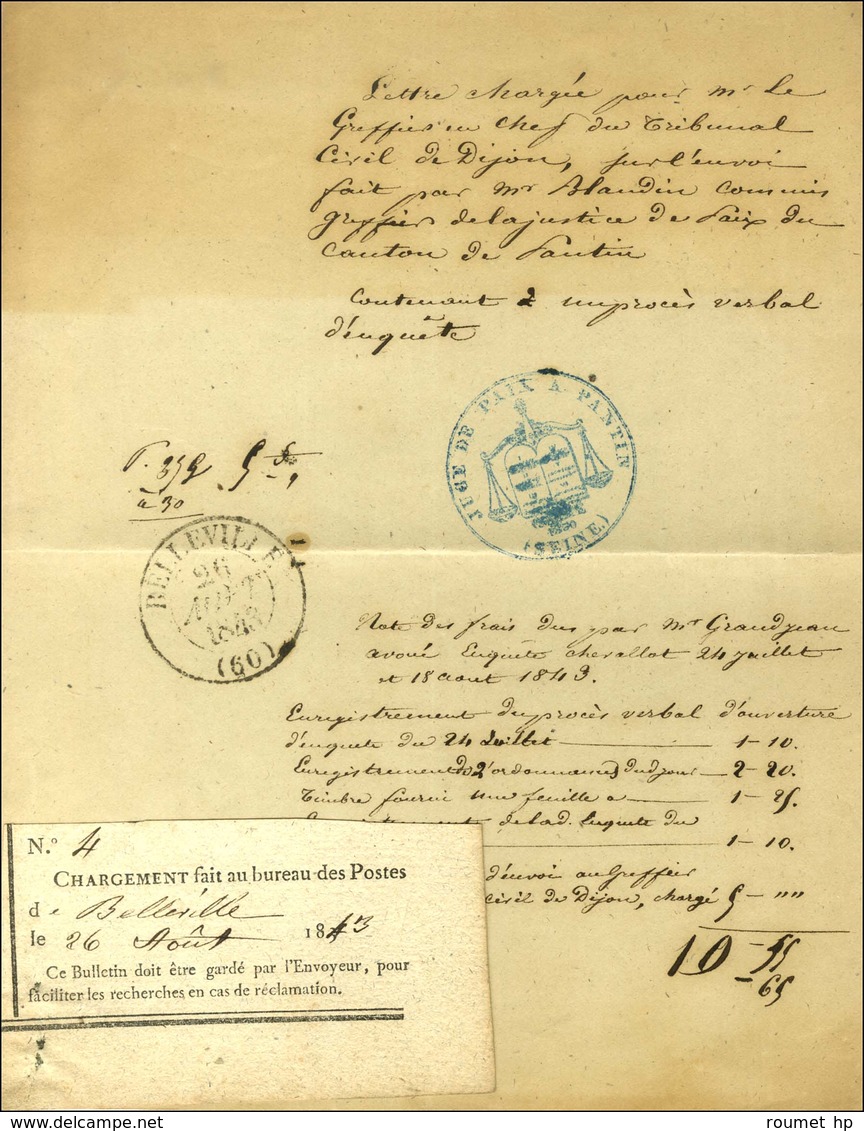 Lettre chargée pour Mr Le
Greffier en Chef du Tribunal
Civil de Dijon, sur l'envoi
fait par Mr Blandin commis
greffier de la justice de Paix du
canton de Pantin
Contenant un procès verbal
d'enquête
JUGE DE PAIX A PANTIN
(SEINE)
à 30
BELLEVILLE
26
AOUT
1843
(60)
Note des frais dus par Mr Grandjean
avoué Enquête Chevallot 24 juillet
et 18 aout 1843.
Enregistrement du procès verbal d'ouverture
d'enquete du 24 Juillet — 1-10.
Enregistrement de 2 ordonnances dud jour — 2-20.
Timbre fourni une feuille a — 1-25.
de lad. Enquete du
— 1-10.
d'envoi au Greffier
civil de Dijon, chargé 5-""
10-55
-65
N.° 4
CHARGEMENT fait au bureau des Postes
de Belleville
le 26 Août 1843
Ce Bulletin doit être gardé par l'Envoyeur, pour
faciliter les recherches en cas de réclamation.
roumet hp